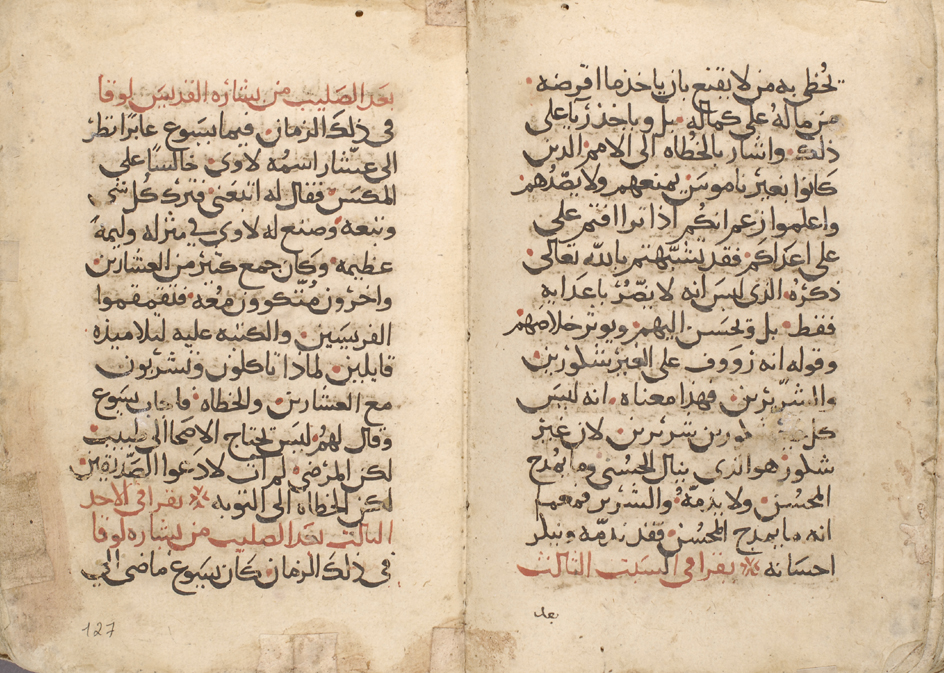 تخطى به من لا يقنع بان ياخذ ما اقرضه
من ماله على كماله بل وياخذ ربا على
ذلك واشار بالخطاه الى الامم الذين
كانوا بغير ناموس يمنعهم ولا يصدهم
واعلموا زعم انكم اذا تراافتم على
على اعداكم فقد تشبهتم بالله تعالى
ذكره الذى ليس انه لا يضر باعدايه
فقط بل ويحسن اليهم ويوثر خلاصهم
وقوله انه رووف على الغير شكورين
والشريرين فهذا معناه انه ليس
كل ورين شريرين لان غير
شكور هو الذى ينال الحسنى وما يمدح
المحسن ولا يذمه والشرير فمعهم
انه ما يمدح المحسن فقد يذمه ويثلب
احسانه يقرا فى السبت الثالث
بعد
بعد الصليب من بشاره القديس لوقا
فى ذلك الزمان فيما يسوع عابرا نظر
الى عشار اسمه لاوى جالسا على
المكس فقال له اتبعنى فترك كل شى
وتبعه وصنع له لاوى فى منزله وليمه
عظيمه وكان جمع كثير من العشارين
واخرون متكوون معه فتقمقموا
الفريسين والكتبه عليه لتلاميذه
قايلين لماذا تاكلون وتشربون
مع العشارين والخطاه فاجاب يسوع
وقال لهم ليس تحتاج الاصحا الى طبيب
لكن المرضى لم ات لادعوا الصديقين
لكن الخطاه الى التوبه يقرا فى الاحد
الثالث بعد الصليب من بشاره لوقا
فى ذلك الزمان كان يسوع ماضى الى
127